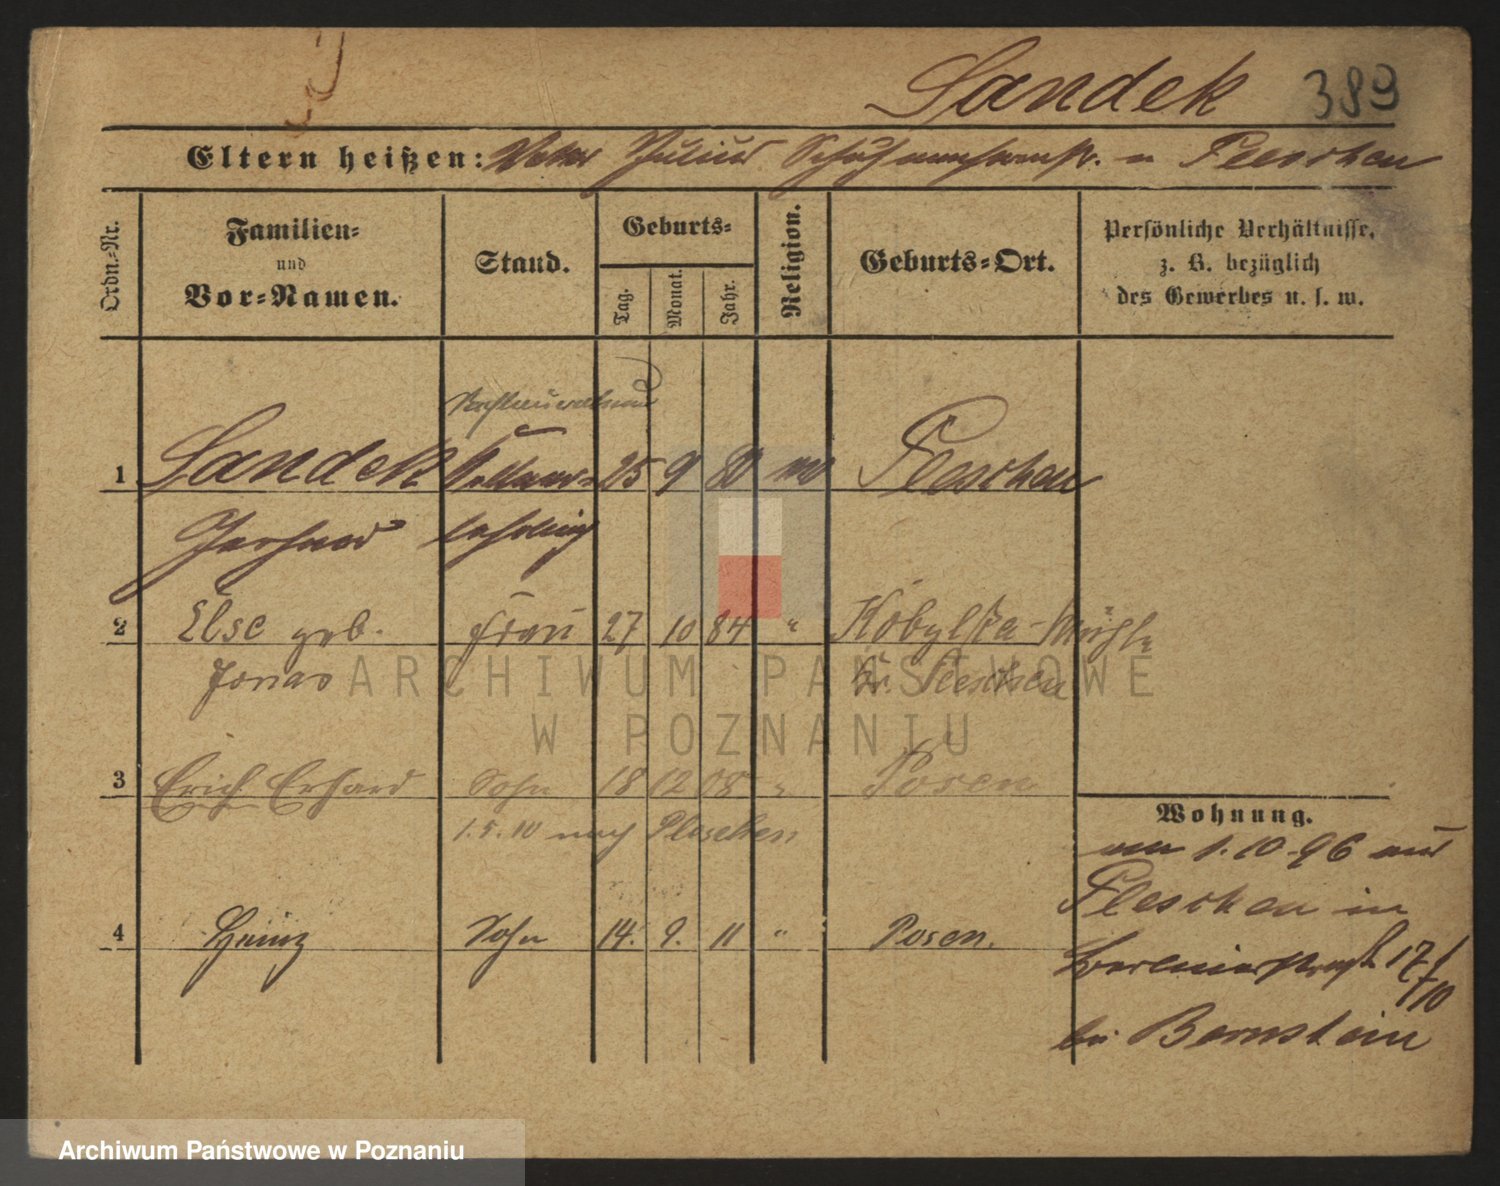 Sandek 389
Eltern heißen: Vater Julius in Pleschen
Ordn.-Nr.
Familien-
und
Vor-Namen.
Stand.
Geburts-
Tag.
Monat.
Jahr.
Religion.
Geburts-Ort.
Persönliche Verhältnisse,
z. B. bezüglich
des Gewerbes u. s. w.
1 Sandek 25 9 80 mos Pleschen
Gerhard lehrling
2 Else geb. Frau 27 10 84 " Kobylka-Mühle
Jonas Kr. Pleschen
3 Erich Erhard Sohn 18 12 08 " Posen
1.5.10 nach Pleschen
4 Heinz Sohn 14. 9. 11 " Posen.
Wohnung.
vom 1.10.96 aus
Pleschen in
17/10
bei Bernstein
ARCHIWUM PAŃSTWOWE
W POZNANIU
Archiwum Państwowe w Poznaniu